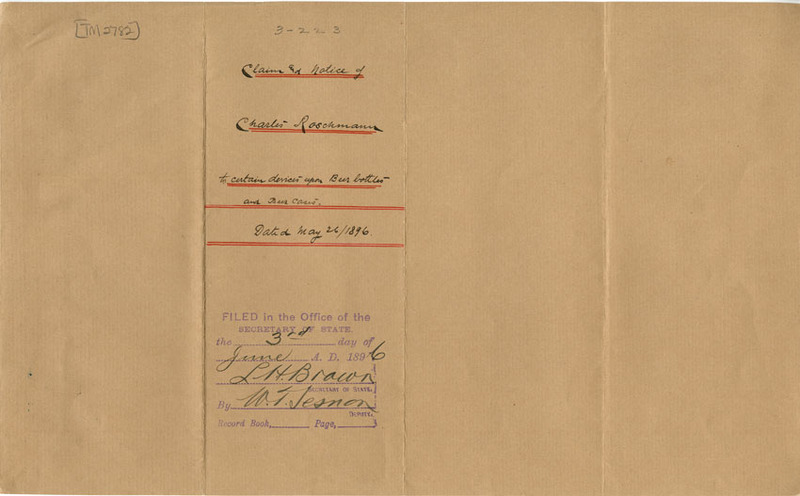 [TM 2782]
3-2223
Claim & Notice of
Charles Roschmann
to certain devices upon Beer bottles
and Beer Cases.
Dated May 26/1896.
FILED in the Office of the
SECRETARY OF STATE,
the 3rd day of
June A. D. 1896
L.H. Brown
SECRETARY OF STATE.
By W. T. Sesnon
DEPUTY.
Record Book, Page,